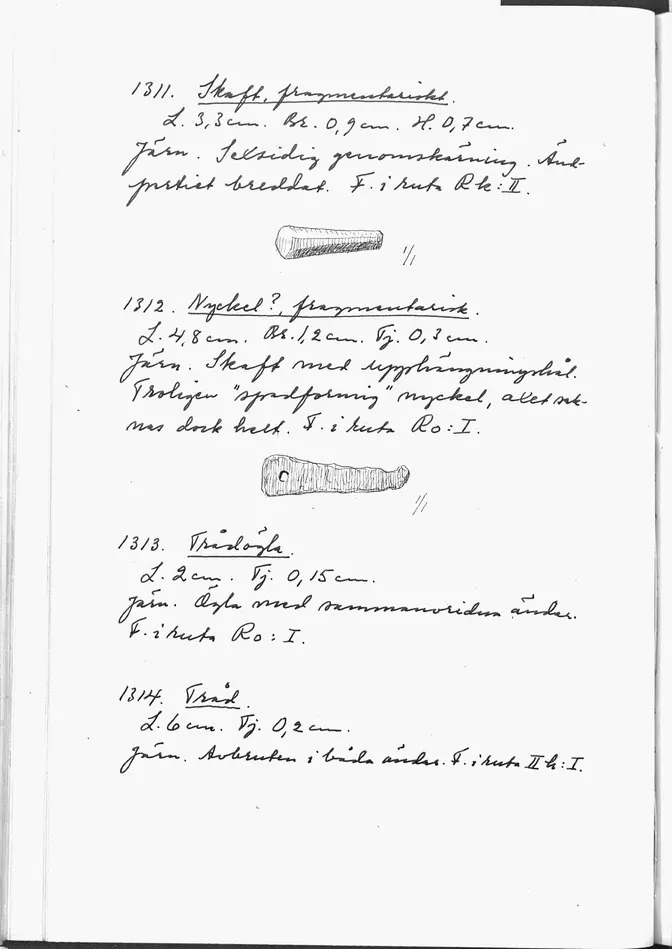 1311. Skaft, fragmentariskt.
L. 3,3 cm. Br. 0,9 cm. H. 0,7 cm.
Järn. Sexsidig genomskärning. Änd-
partiet breddat. F. i ruta R k: II.
1/1
1312. Nyckel?, fragmentarisk.
L. 4,8 cm. Br. 1,2 cm. Tj. 0,3 cm.
Järn. Skaft med upphängningshål.
Troligen "spadformig" nyckel, axet sak-
nas dock helt. F. i ruta Ro: I.
1/1
1313. Trådögla.
L. 2 cm. Tj. 0,15 cm.
Järn. Ögla med sammanvridna ändar.
F. i ruta Ro: I.
1314. Tråd.
L. 6 cm. Tj. 0,2 cm.
Järn. Avbruten i båda ändar. F. i ruta II h: I.